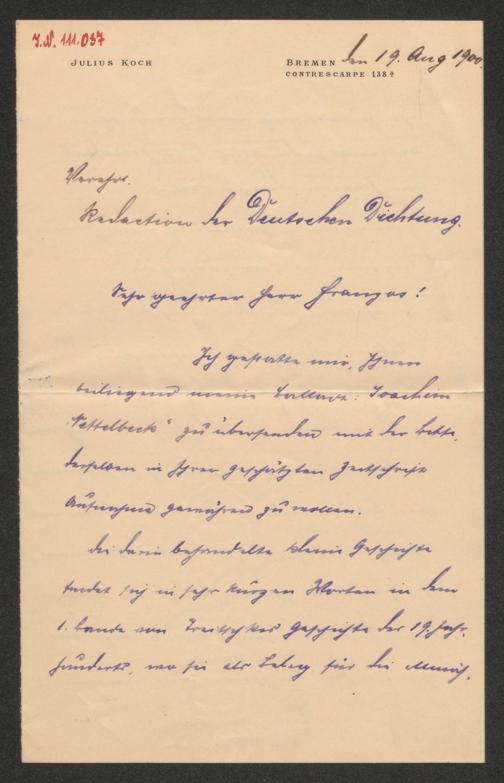 J.N. 111.037
JULIUS KOCH
BREMEN den 19. Aug 1900.
CONTRESCARPE 138
Verehrl.
Redaction der Deutschen Dichtung.
Sehr geehrter Herr Franzos!
Ich gestatte mir, Ihnen
beiliegend meine Ballade: Joachim
Nettelbeck" zu übersenden mit der Bitte,
derselben in Ihrer geschätzten Zeitschrift
Aufnahme gewähren zu wollen.
Die darin behandelte kleine Geschichte
findet sich in sehr kurzen Worten in dem
1. Bande von Treitschkes Geschichte des 19. Jahr-
hunderts, wo sie als Beleg für die